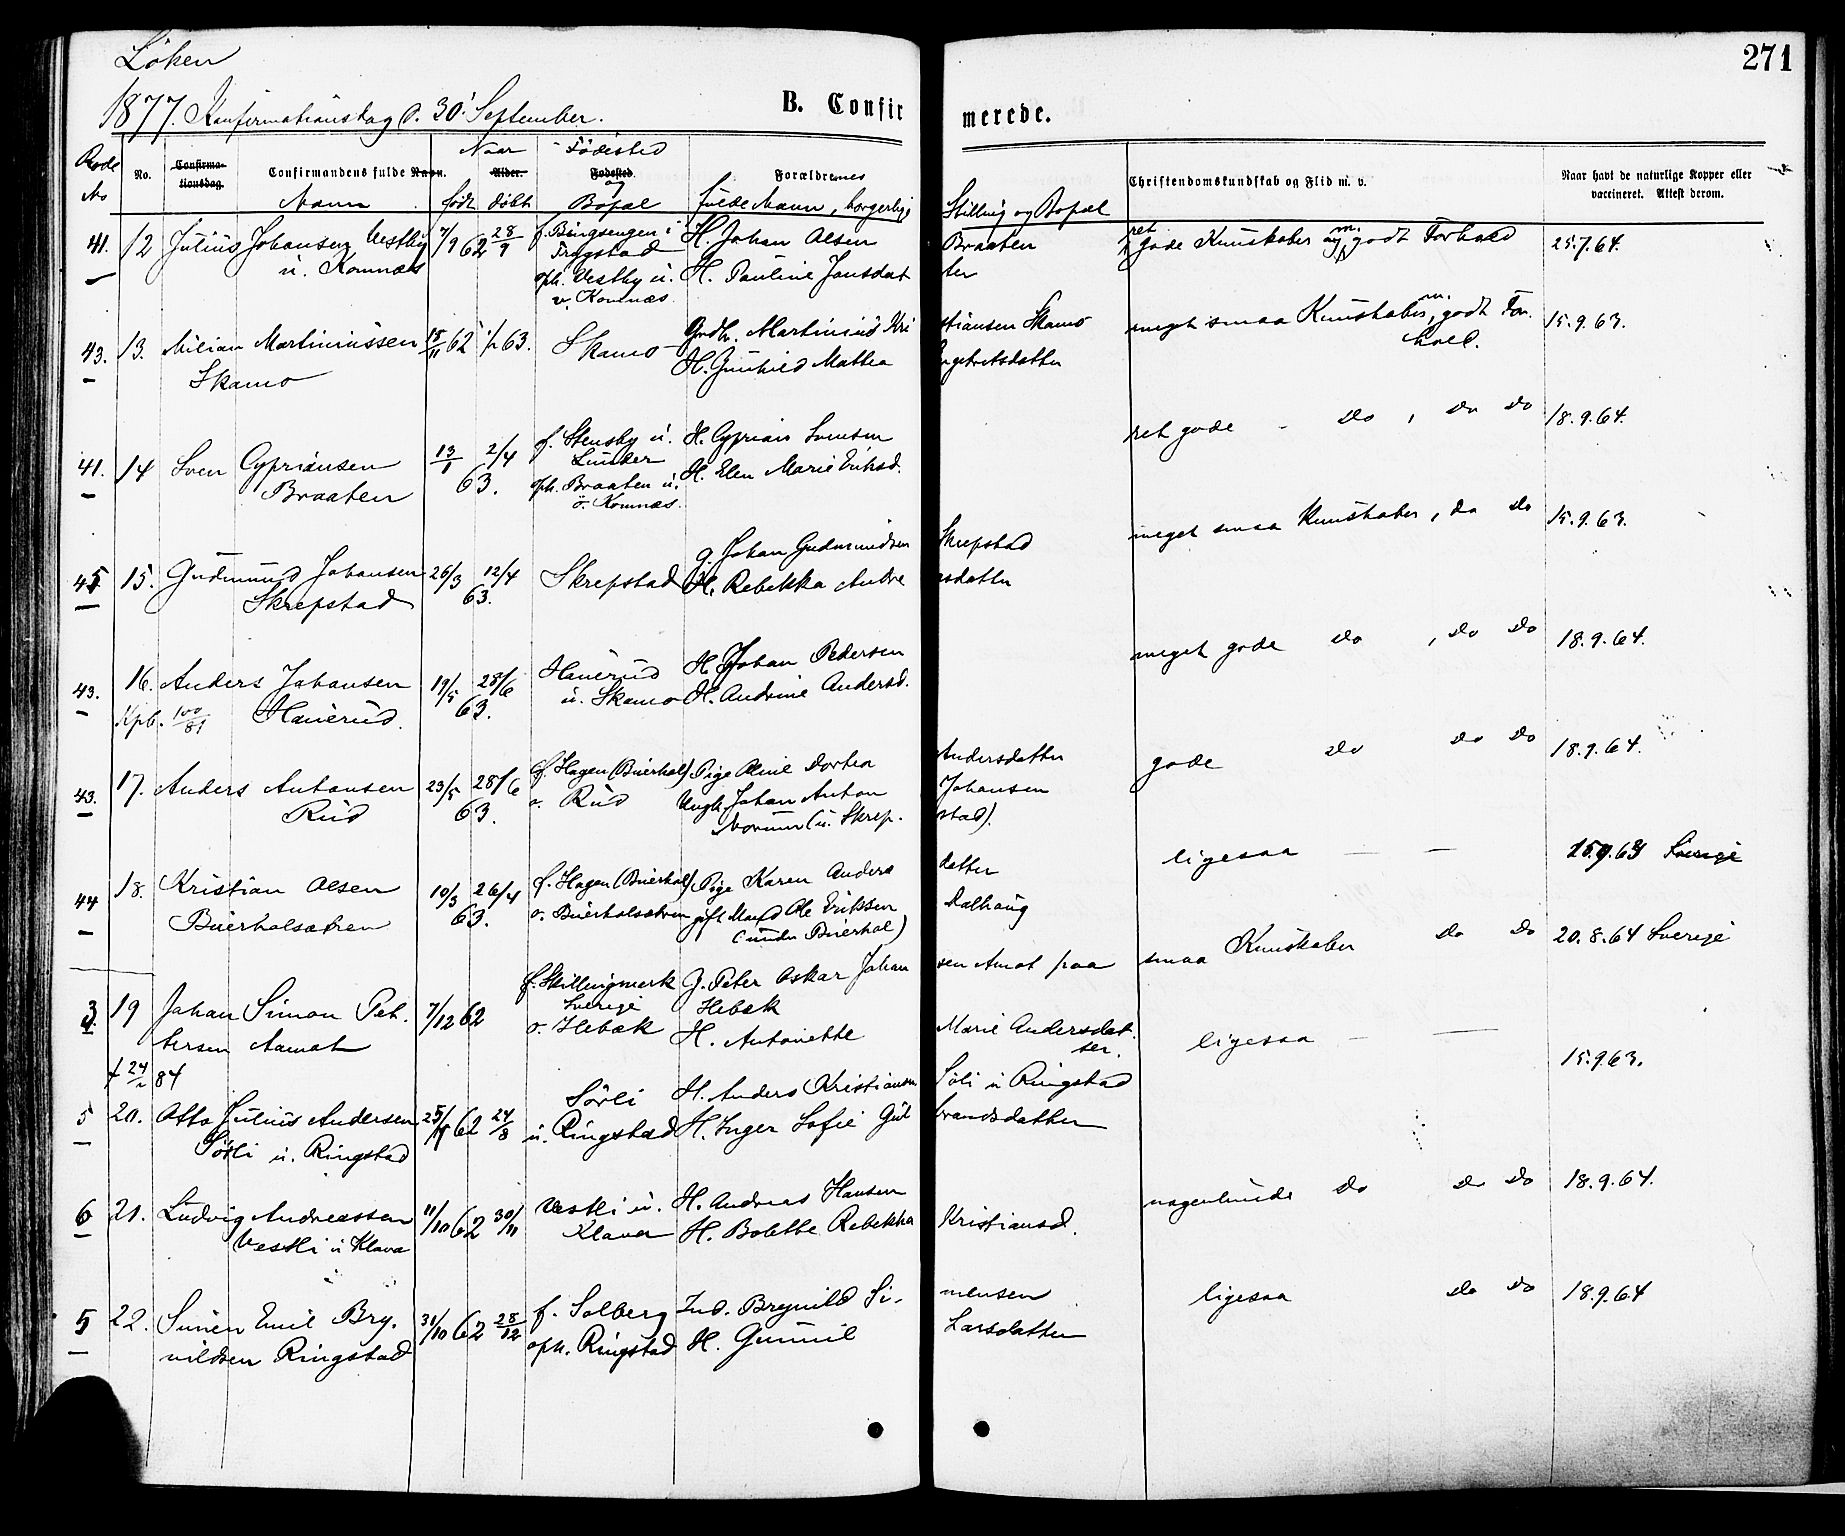 Löken
271
1877. Konfirmationsdag d. 30' September.
B. Confirmerede.
Rode No
No.
Confirmationsdag.
Confirmandens fulde Navn.
Navn
Naar
Alder.
født døbt
Födested
Fødested.
og
Bopæl
Forældrenes
fulde Navn, borgerlige Stilling og Bopæl
Christendomskundskab og Flid m. v.
Naar havt de naturlige Kopper eller
vaccineret. Attest derom.
41. 12 Julius Johansen Vestby 7/9 62 28/9 f. Bingsengen i H. Johan Olsen Braaten ret gode Kundskaber og m. godt Forhold 25.7.64.
u. Komnæs Trygstad H. Pauline Jonsdatter
oph. Vestby u.
v. Komnæs.
43. 13. Milian Martiniussen 15/11 62 1/1 63. Skamo Grdbr. Martinius Kristiansen Skamo meget smaa Kundskaber, m. godt Forhold. 15.9.63.
Skamo H. Gunhild Mathea Engebretsdatter
41. 14 Sven Cypriansen 13/1 2/4 63. f. Stensby u. H. Cyprian Svensen ret gode - do , do do 18.9.64.
Braaten Lunder H. Elen Marie Eriksd.
oph. Braaten u.
ö. Komnæs.
45 15. Gudmund Johansen 26/3 12/4 63. Skrepstad g. Johan Gudmundsen Skrepstad meget smaa Kundskaber, do do 15.9.63.
Skrepstad H. Rebekka Andersdatter
43. 16. Anders Johansen 19/5 28/6 63. Hauerud H. Johan Pedersen meget gode do , do do 18.9.64.
Kpb. 100/81 Hauerud. u. Skamo H. Andrine Andersd.
43. 17. Anders Antonsen 23/5 28/6 63. f. Hagen (Buerhol) Pige Oline Dortea Andersdatter gode do do do 18.9.64.
Rud o. Rud Ungk. Johan Anton Johansen
Morum (u. Skrepstad).
44 18. Kristian Olsen 10/3 26/4 63. f. Hagen (Buerhol) Pige Karen Andersdatter ligesaa — — 15.9.63 Sverige
Buerholsætren o. Buerholsætren gift Mand Ole Eriksen Dalhaug
(under Buerhol)
3. 19 Johan Simon Petersen Aamot 7/12 62 f. Skillingmark J. Peter Oskar Johansen Amot paa smaa Kundskaber do do 20.8.64 Sverige
Sverige Hebæk
o. Hebæk H. Antonette Marie Andersdatter.
† 24/2 84
5 20. Otto Julius Andersen 25/5 62 24/8 Sörli H. Anders Kristiansen Söli u Ringstad ligesaa — — 15.9.63.
Sörli u. Ringstad u. Ringstad H. Inger Sofie Gulbrandsdatter
6 21. Ludvig Andreassen 11/10 62 30/11 Vestli u. H. Andreas Hansen nogenlunde do do do 18.9.64.
Vestli u Klava Klava H. Bolette Rebekka Kristiansd.
5 22. Simen Emil Bry- 31/10 62 28/12 f. Solberg Ind. Brynild Simensen ligesaa do do 18.9.64
nildsen Ringstad oph. Ringstad H. Gunnil Larsdatter